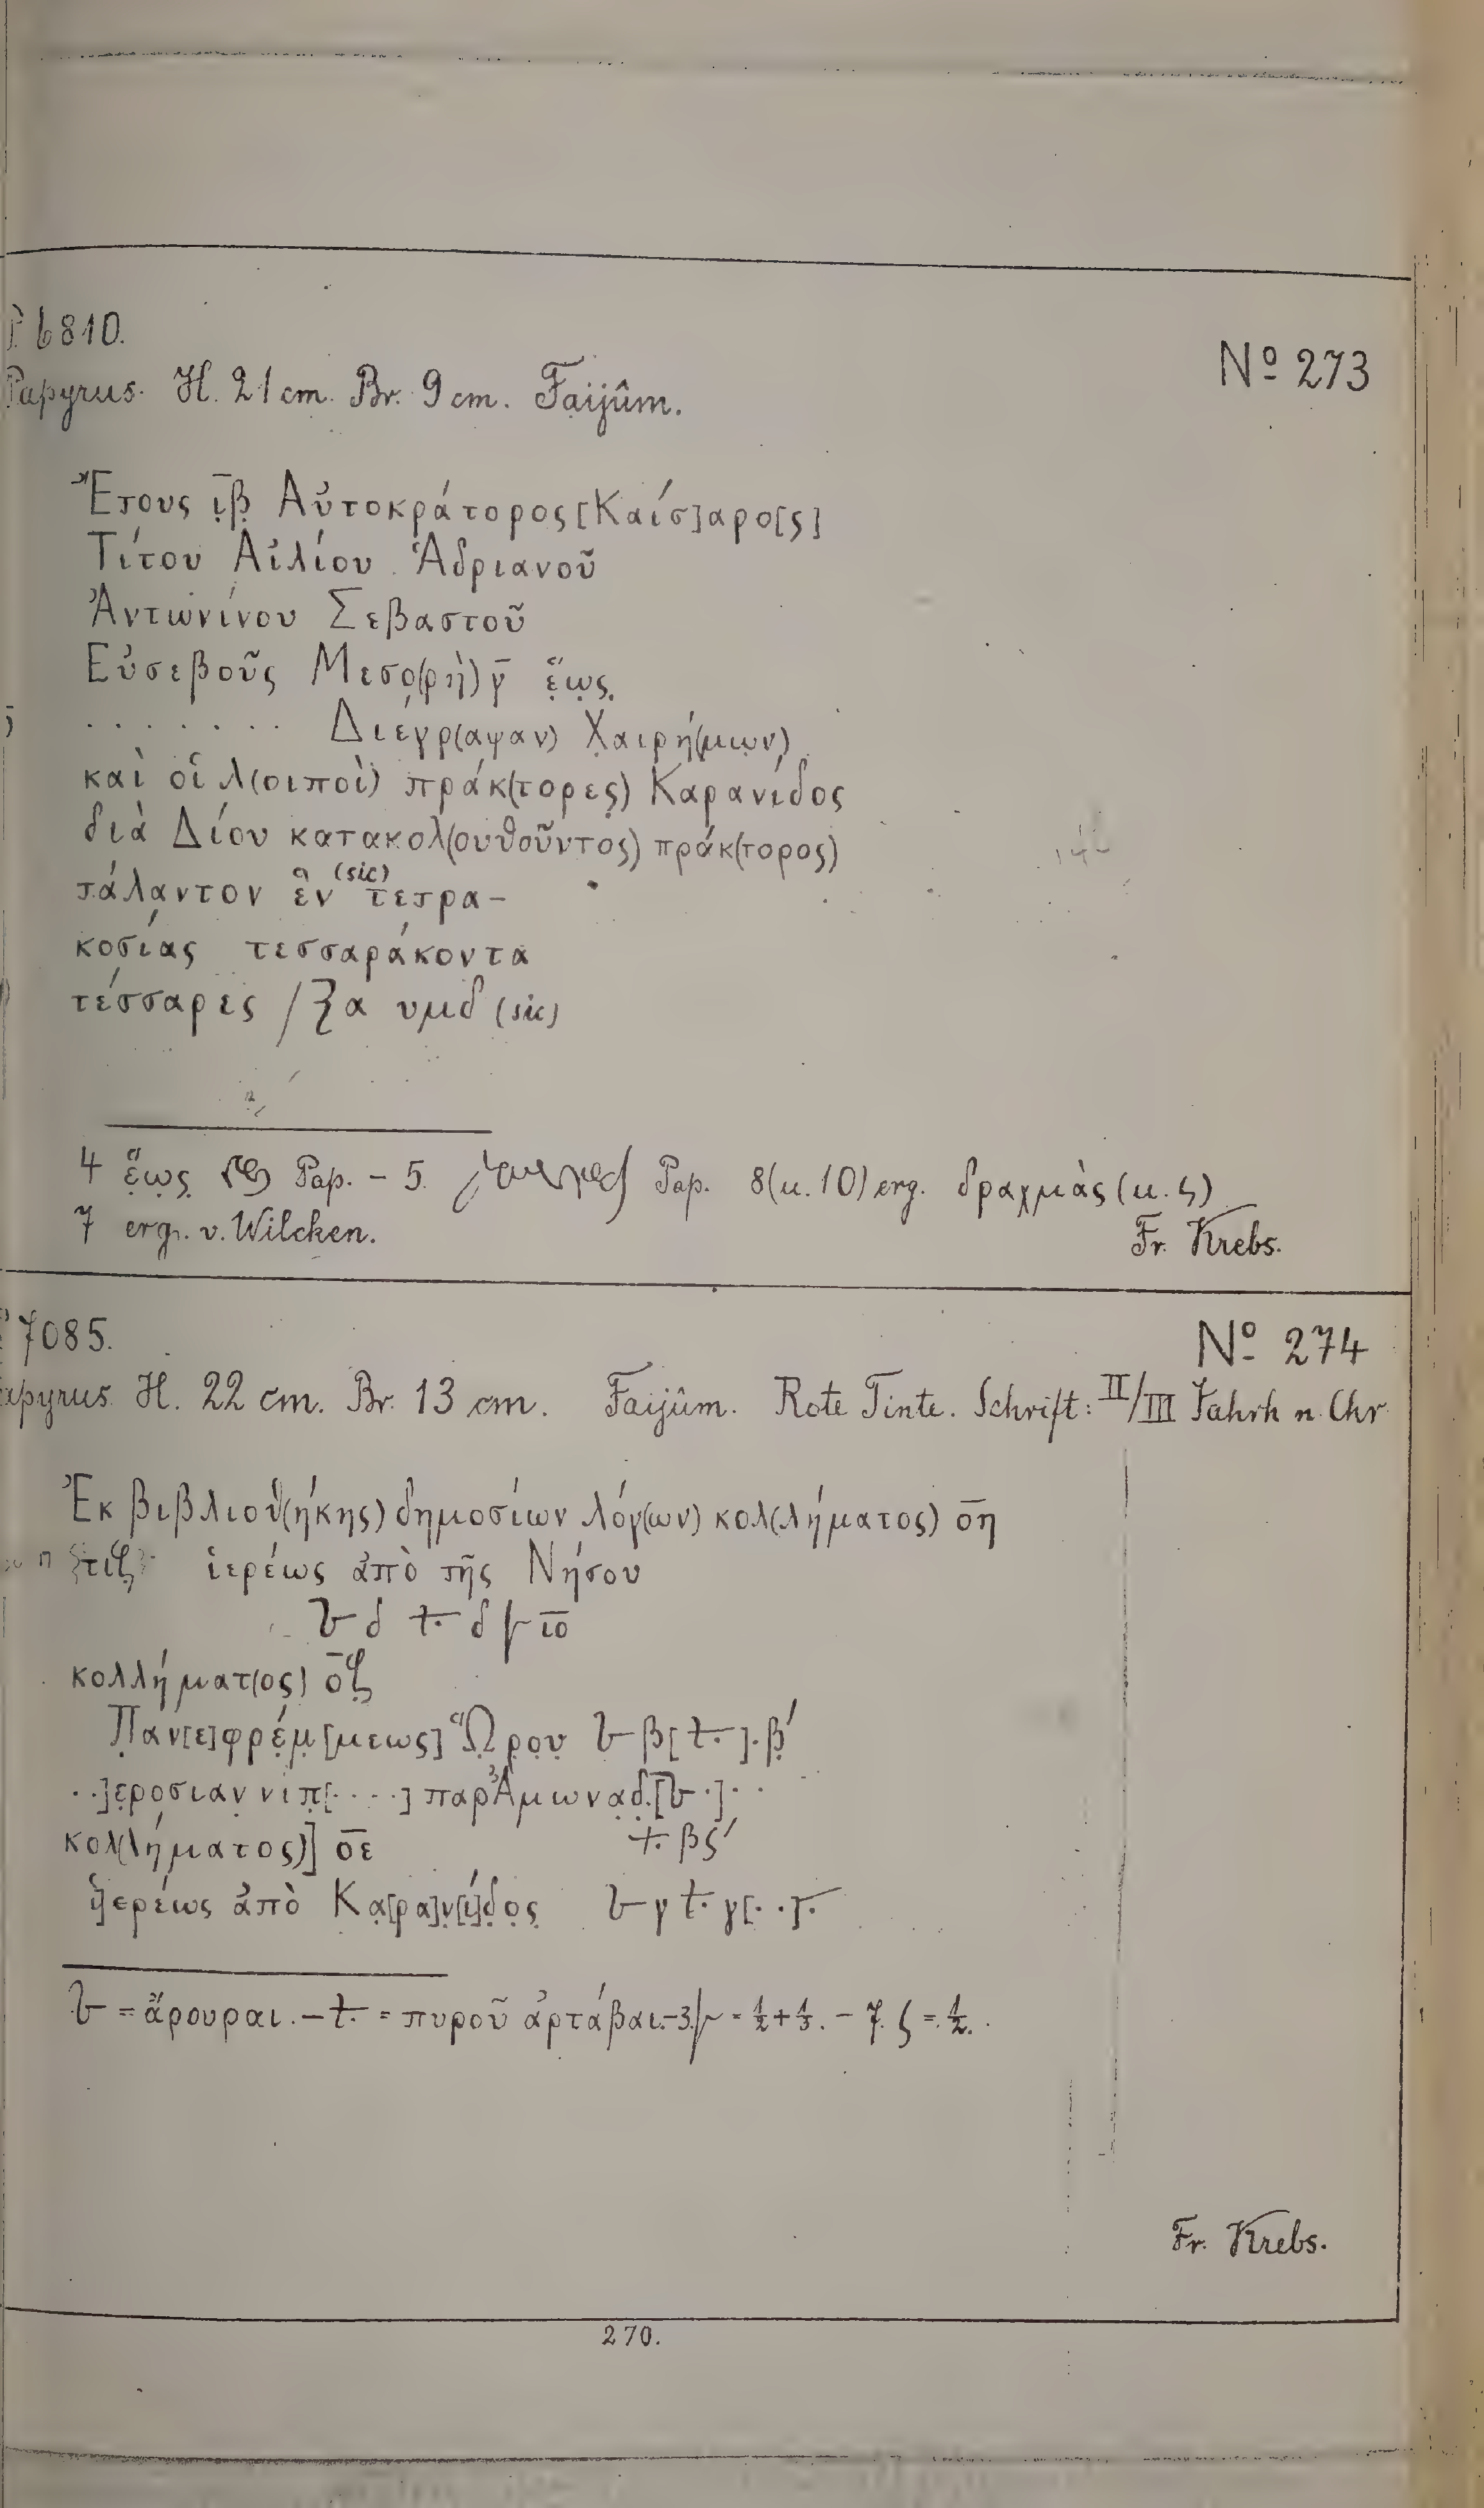 P. 6810.
Nº 273
Papyrus. H. 21 cm. Br. 9 cm. Faijûm.
Ἔτους ι̣β̣̅ Αὐτοκράτορος [Καίσ]αρο[ς]
Τίτου Αἰλίου Ἁδριανοῦ
Ἀντωνίνου Σεβαστοῦ
Εὐσεβοῦς Μεσο(ρὴ) γ̅ ἕ̣ω̣ς̣
. . . . . . . Διέγρ(αψαν) Χαιρή(μων)
καὶ οἱ λ(οιποὶ) πράκ(τορες) Καρανίδος
διὰ Δίου κατακολ(ουθοῦντος) πράκ(τορος)
τάλαντον ἓν (sic) τετρα-
κοσίας τεσσαράκοντα
τέσσαρες / α υμδ (sic)
4 ἕ̣ω̣ς̣ Pap. – 5. Pap. 8 (u. 10) erg. δραχμὰς (u. ϛ)
7 erg. v. Wilcken.
Fr. Krebs.
7085.
Nº 274
Papyrus H. 22 cm. Br. 13 cm. Faijûm. Rote Tinte. Schrift: II/III Jahrh n. Chr
Ἐκ βιβλιοθ(ήκης) δημοσίων λόγ(ων) κολ(λήματος) ο̅η̅
ἱερέως ἀπὸ τῆς Νήσου
δ δ ι̅ο̅
κολλήματ(ος) ο̅ζ̅
Παν[ε]φρέμ[μεως] Ὥρου β [ ]. β′
. .]εροσιαν νιπ[. . . .] παρ Ἀμωναδ [ .] . .
κολ(λήματος)] ο̅ε̅ βϛ′
ἱ]ερέως ἀπὸ Κα[ρα]ν[ί]δος γ γ[. .].
= ἄρουραι. – = πυροῦ ἀρτάβαι. – 3. = ½ + ⅓. – 7. ϛ = ½.
Fr. Krebs.
270.